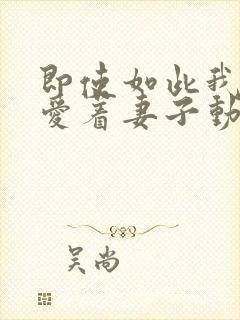 即使如此我
爱着妻子動
吴尚